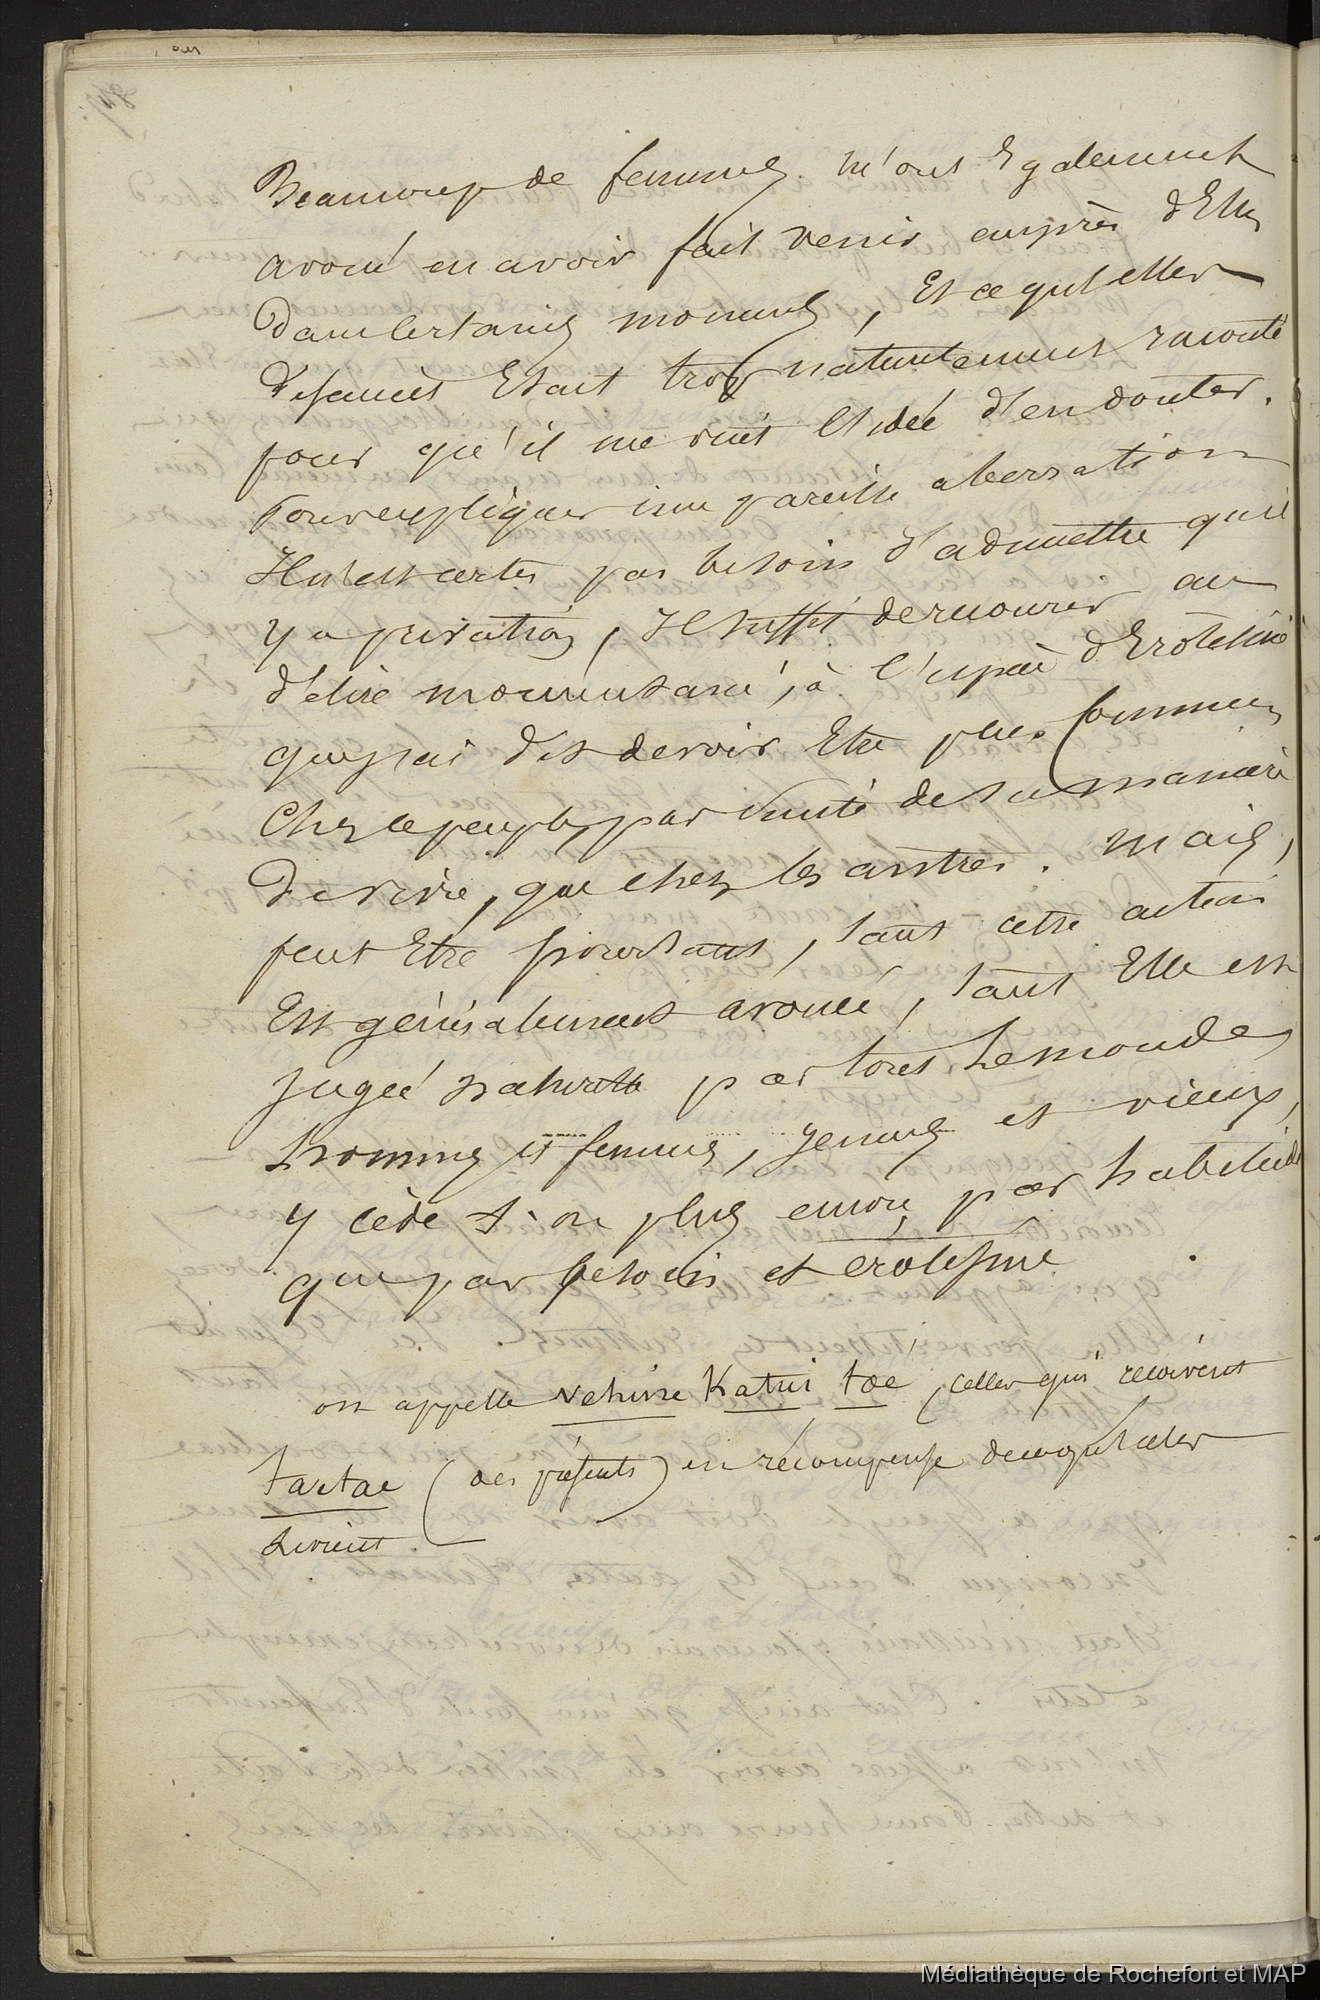 Beaucoup de femmes m'ont Egalement
avoué en avoir fait venir auprès d'Elles
dans certains moments, Et ce qu'elles
disaient Etait trop naturellement raconté
pour qu'il me vint l'idée d'en douter.
Pour expliquer une pareille aberration
Il n'est certes pas besoin d'admettre qu'il
y a privation, Il suffit de recourir au
délire momentané, à l'espèce d'Erotisme
que j'ai dit devoir Etre plus commun
Chez ce peuple, par suite de sa manière
de vivre, que chez les autres. Mais,
peut Etre pourtant, tant cette action
Est généralement avouée, tant Elle est
jugée naturelle par tout le monde,
hommes et femmes, jeunes et vieux,
y cède t'on plus encore par habitude
que par besoin et erotisme
on appelle vehine Katui toé, celles qui reçoivent
taetae (des présents) en récompense de ce qu'elles
livrent.
Médiathèque de Rochefort et MAP